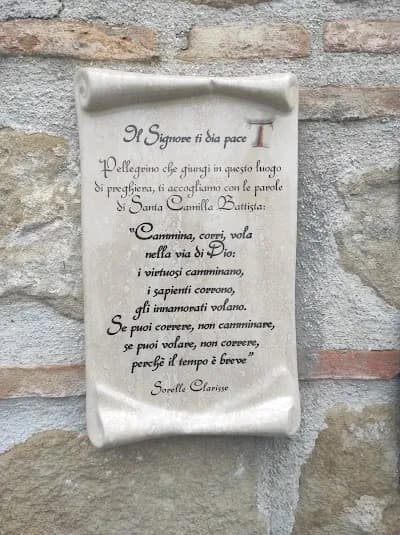 Il Signore ti dia pace
Pellegrino che giungi in questo luogo
di preghiera, ti accogliamo con le parole
di Santa Camilla Battista:
"Cammina, corri, vola
nella via di Dio:
i virtuosi camminano,
i sapienti corrono,
gli innamorati volano.
Se puoi correre, non camminare,
se puoi volare, non correre,
perchè il tempo è breve"
Sorelle Clarisse